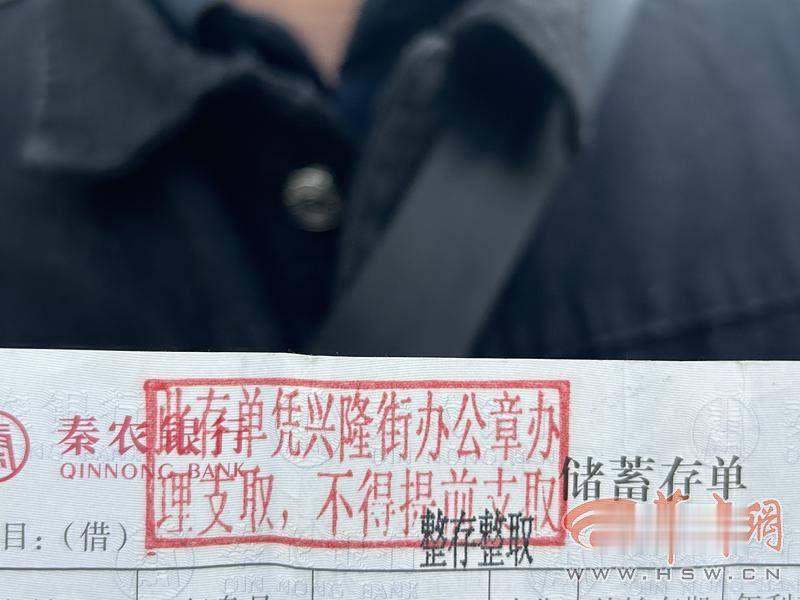 秦农银行
QINNONG BANK
此存单凭兴隆街办公章办
理支取，不得提前支取
储蓄存单
整存整取
目：（借）
华商网
WWW.HSW.CN